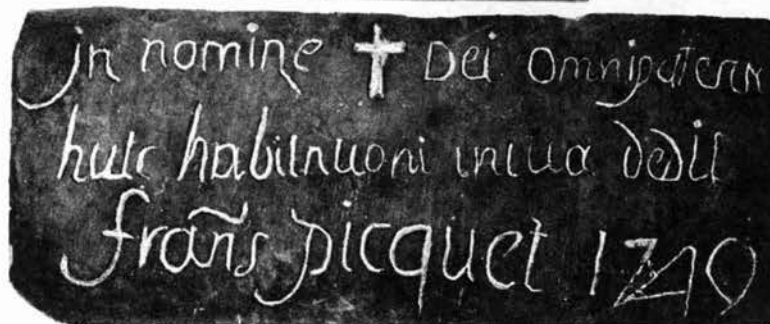 in nomine ✝ Dei Omnipotentis
huic habitationi initia dedit
frañs picquet 1749